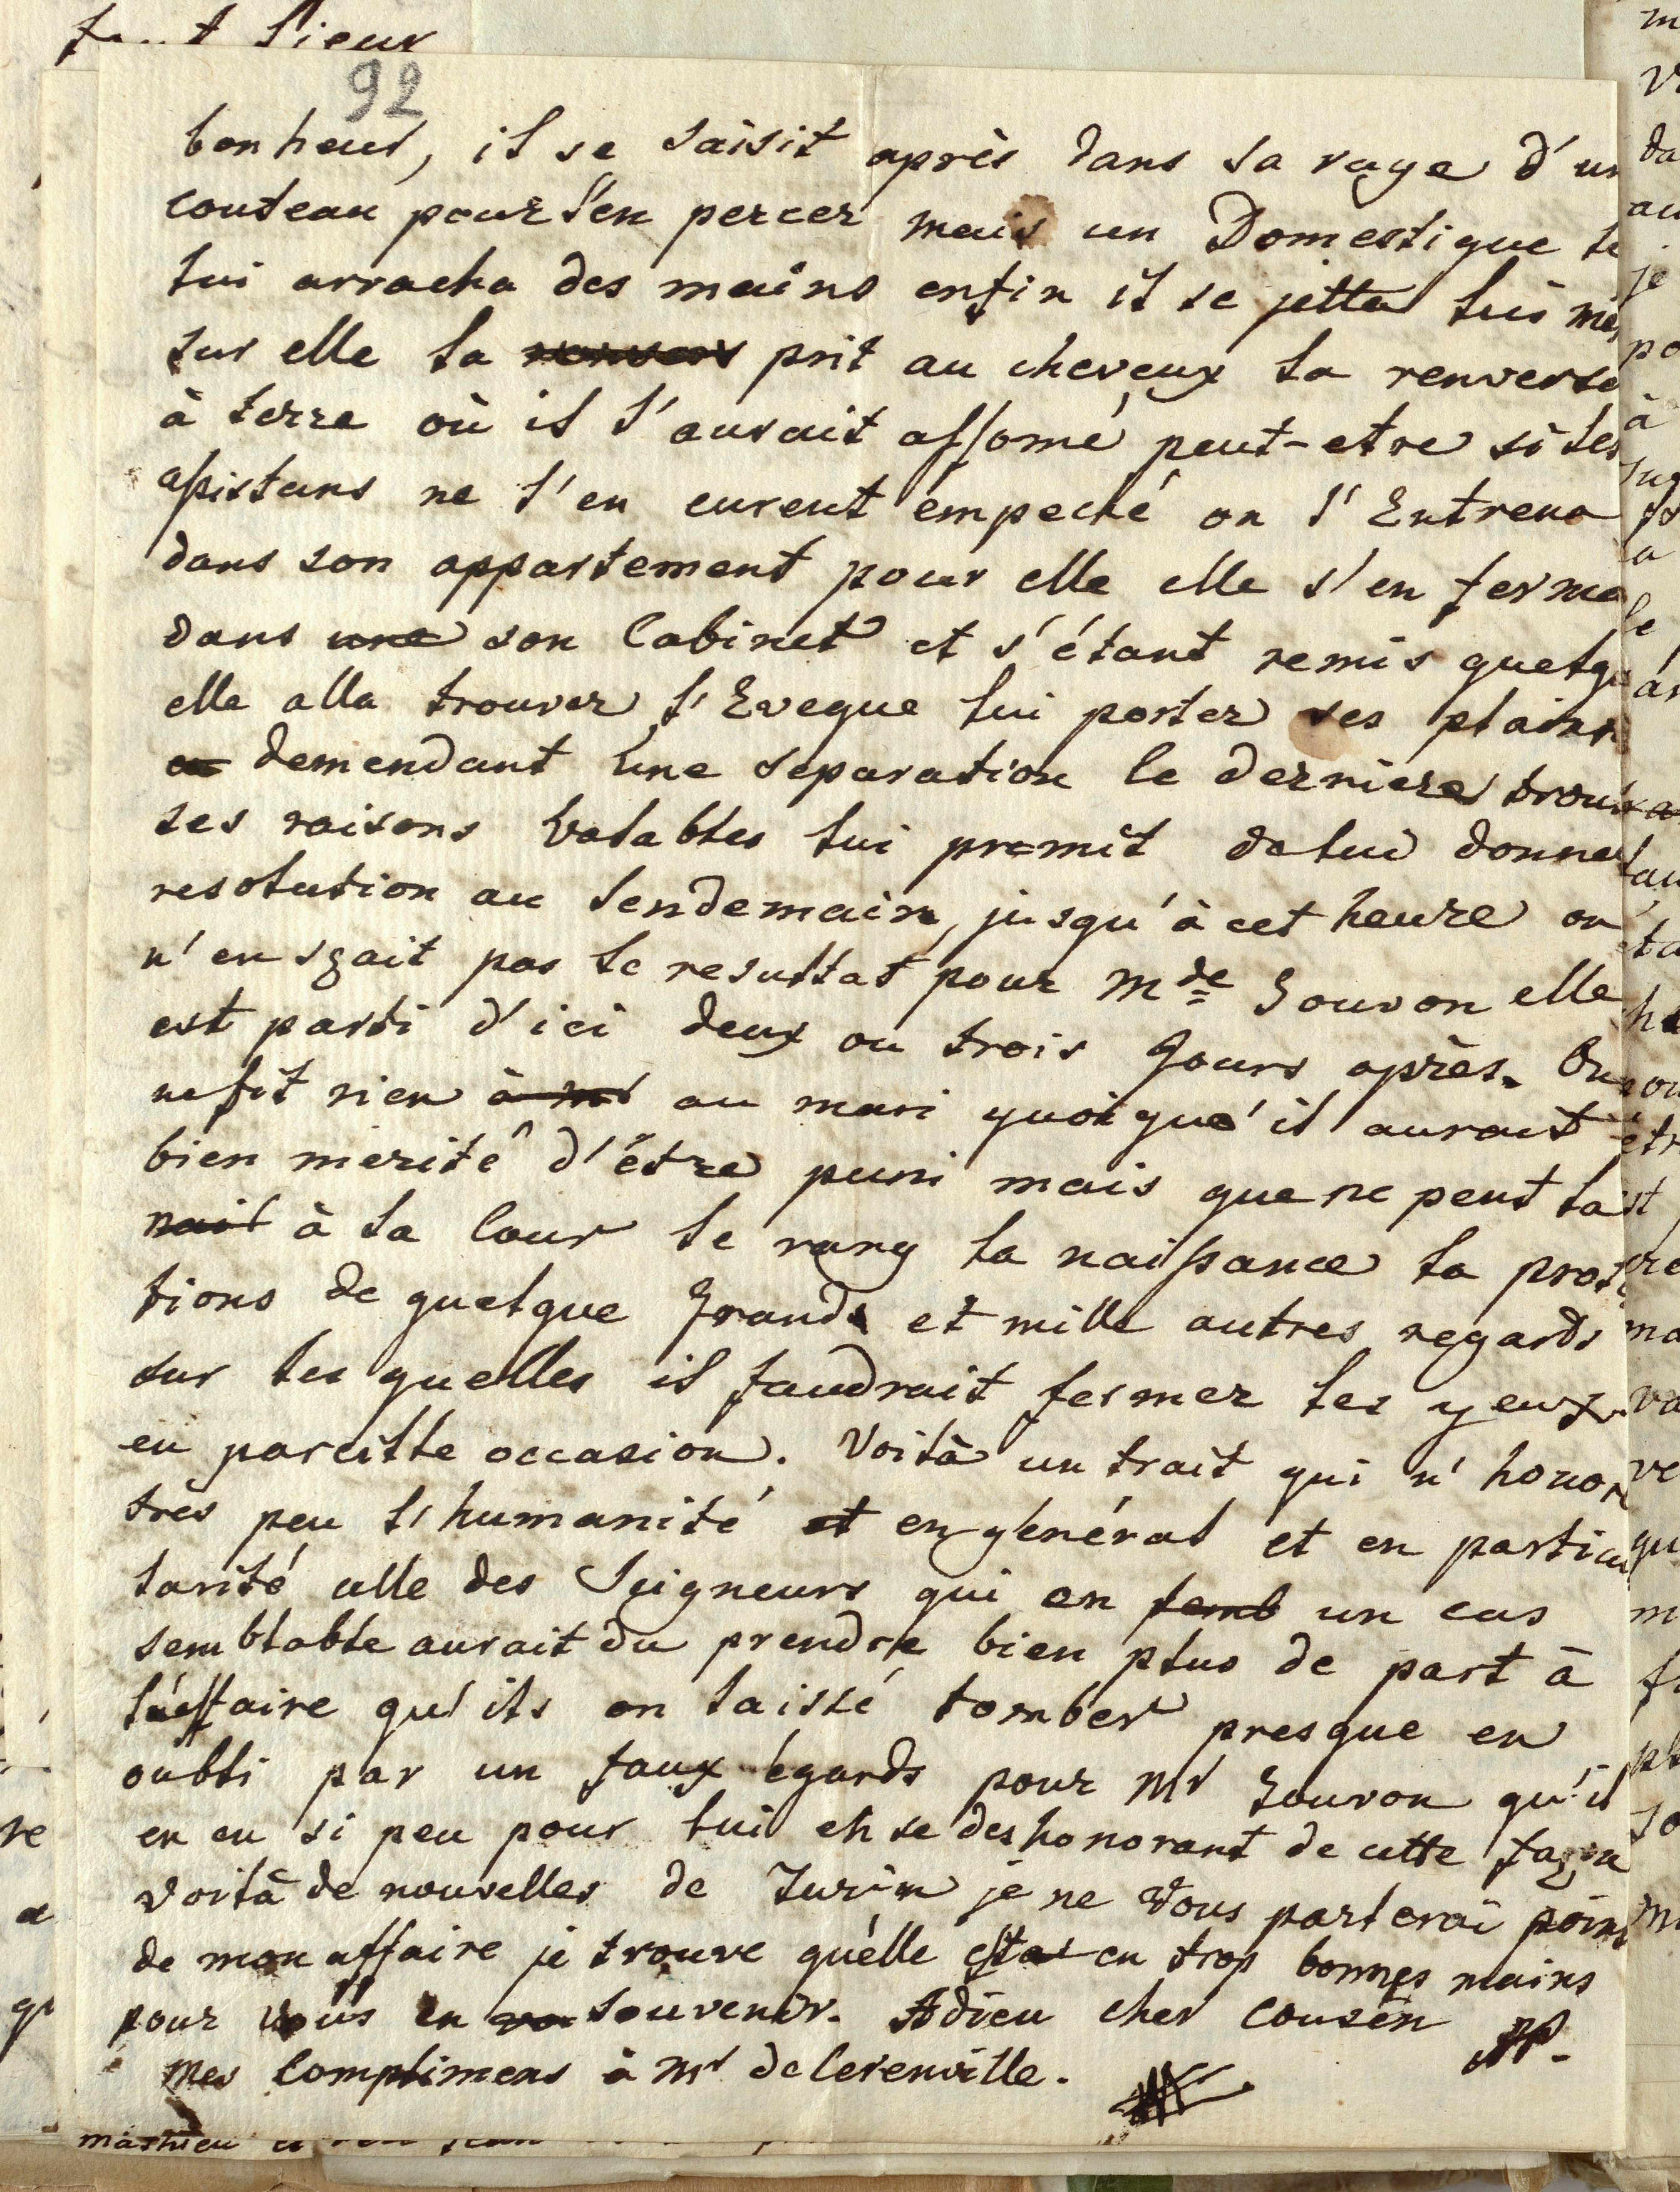 92
bonheur, il se saisit après dans sa rage d'un
couteau pour s'en percer mais un Domestique le
lui arracha des mains enfin il se jetta lui me
sur elle la prit au cheveux la renversa
à terre où il l'aurait assomé peut-etre si les
assistans ne l'en eurent émpeché on l'Entrena
dans son appartement pour elle elle s'en ferma
dans une son Cabinet et s'étant remis quelqu
elle alla trouver l'Eveque lui porter ses plaint
en demendant une separation le derniere trouva
ses raisons valables lui promit de lui donner
resolution au lendemain, jusqu'à cet heure on
n'en sçait pas le resultat pour Mde Gouvon elle
est parti d'ici deux ou trois Jours après. On
ne fit rien au mari quoi que' il aurait
bien merité d'être puni mais que ne peut la
nais à la Cour le rang la naissance la protec
tions de quelque Grands et mille autres regards
sur les quelles il faudrait fermer les yeux
en pareille occasion. Voilà un trait qui n'honor
très peu l'humanité et en général et en particu
larité celle des Seigneurs qui en semb un cas
semblable aurait du prendre bien plus de part à
l'affaire qu'ils on laissé tomber presque en
oubli par un faux égards pour Mr Gouvon qu'il
en eu si peu pour lui en se deshonorant de cette façon
voilà de nouvelles de Turin je ne vous parlerai point
de mon affaire je trouve qu'elle est en trop bonnes mains
pour vous en souvenir. Adieu cher Cousin
Mes Complimens à Mr de Cerenville.